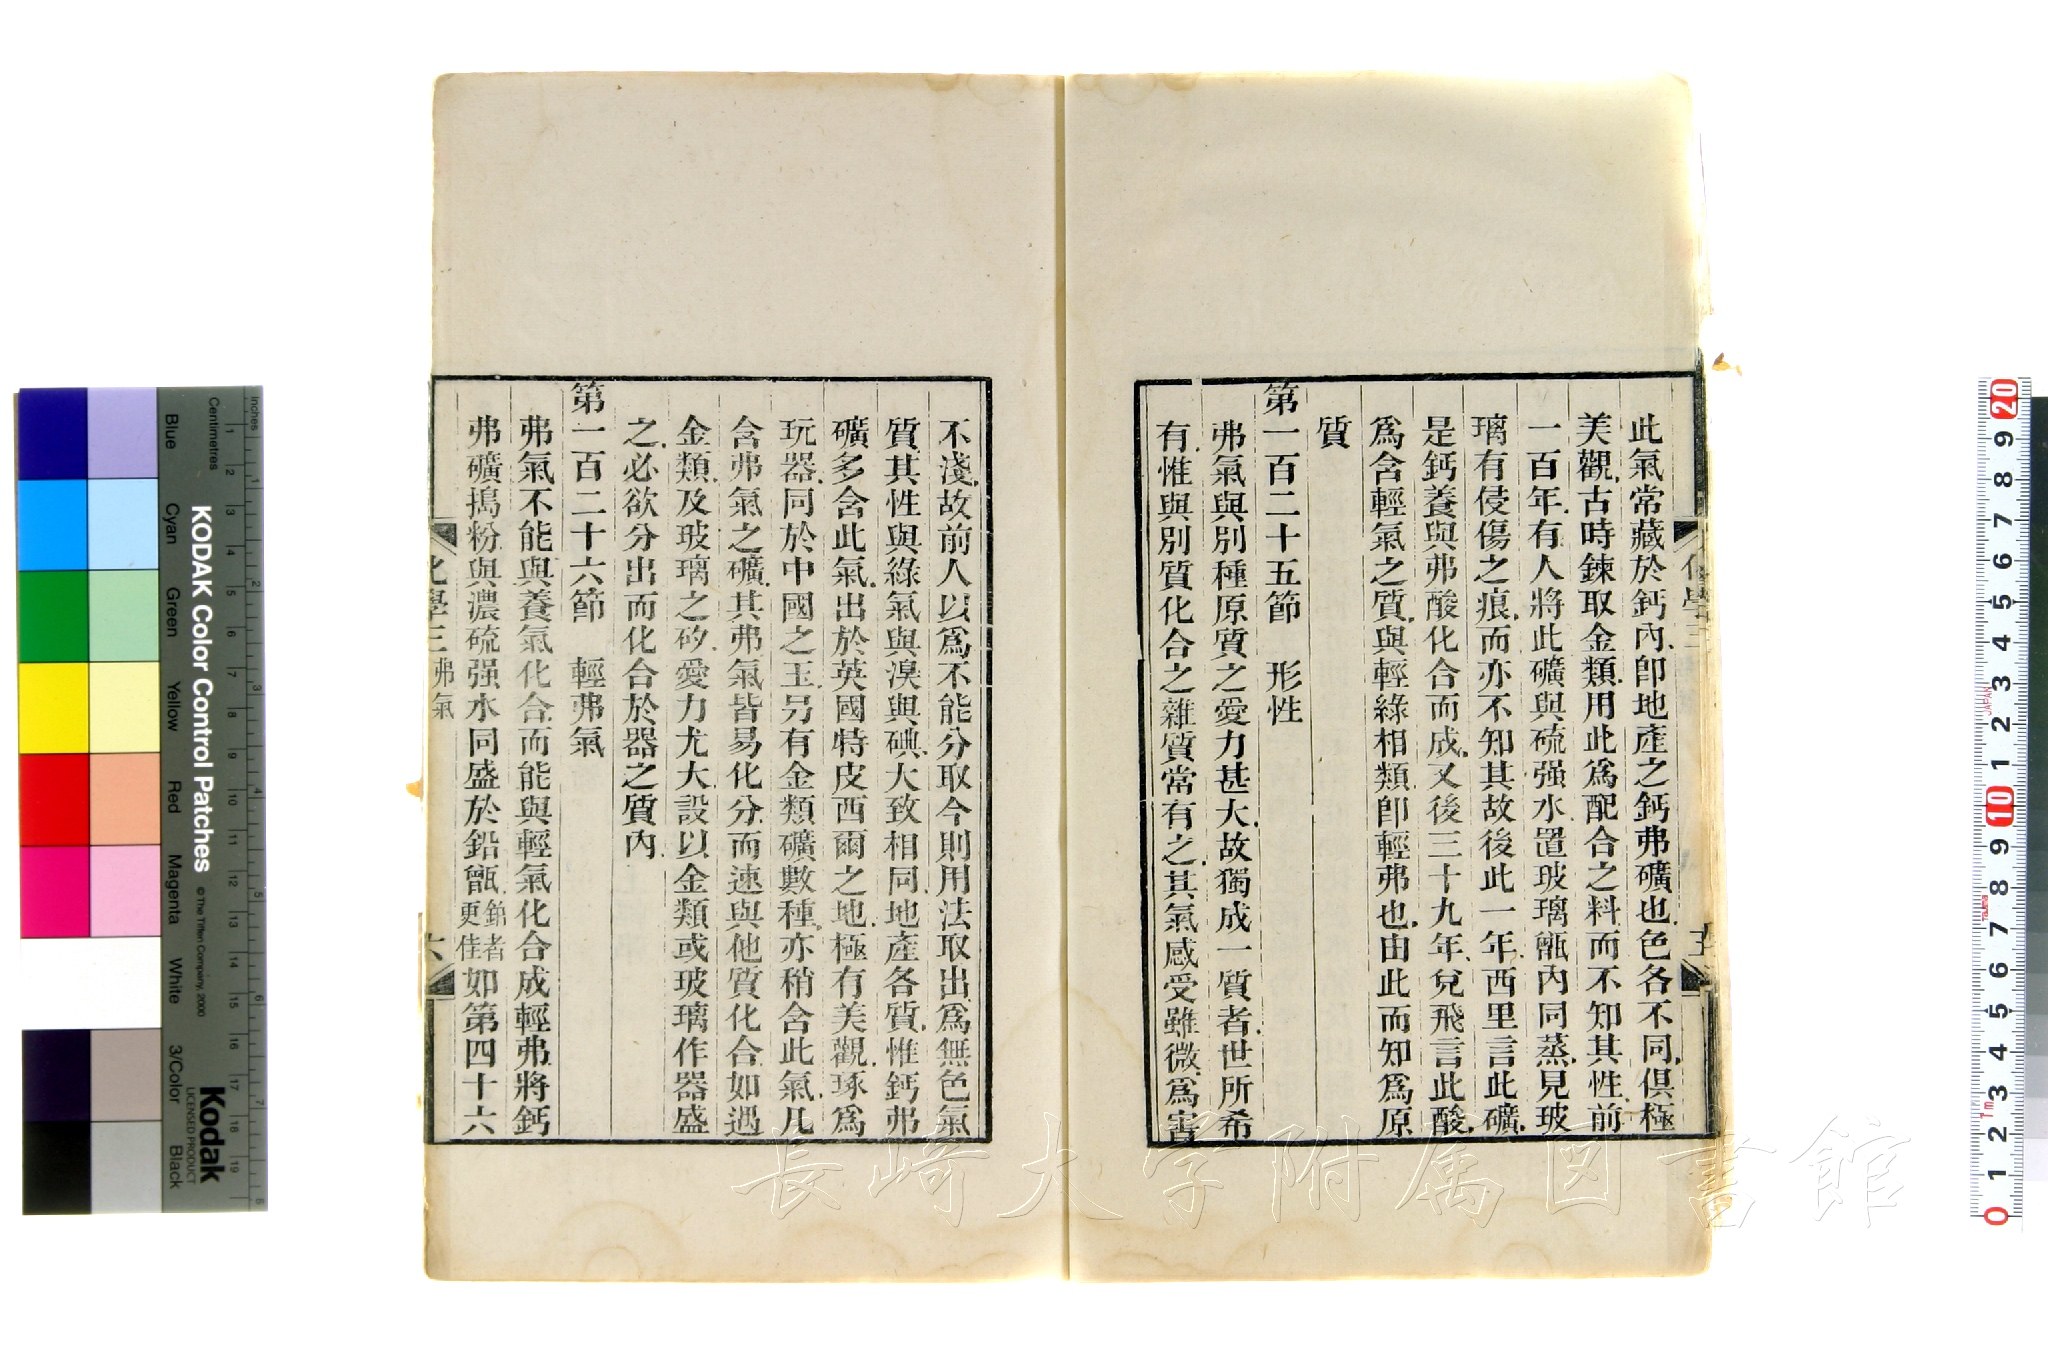 此氣常藏於鈣內卽地產之鈣弗礦也色各不同俱極
美觀古時鍊取金類用此爲配合之料而不知其性前
一百年有人將此礦與硫强水置玻璃甑內同蒸見玻
璃有侵傷之痕而亦不知其故後此一年西里言此礦
是鈣養與弗酸化合而成又後三十九年兌飛言此酸
爲含輕氣之質與輕綠相類卽輕弗也由此而知爲原
質
第一百二十五節 形性
弗氣與別種原質之愛力甚大故獨成一質者世所希
有惟與別質化合之雜質常有之其氣感受雖微爲害
化學三
五
不淺故前人以爲不能分取今則用法取出爲無色氣
質其性與綠氣與溴與碘大致相同地產各質惟鈣弗
礦多含此氣出於英國特皮西爾之地極有美觀琢爲
玩器同於中國之玉另有金類礦數種亦稍含此氣凡
含弗氣之礦其弗氣皆易化分而速與他質化合如遇
金類及玻璃之矽愛力尤大設以金類或玻璃作器盛
之必欲分出而化合於器之質內
第一百二十六節 輕弗氣
弗氣不能與養氣化合而能與輕氣化合成輕弗將鈣
弗礦搗粉與濃硫强水同盛於鉛甑鉑者更佳如第四十六
化學三 弗氣
六
KODAK Color Control Patches
© The Tiffen Company, 2000
Kodak
LICENSED PRODUCT
Inches
Centimetres
Blue
Cyan
Green
Yellow
Red
Magenta
White
3/Color
Black
1 2 3 4 5 6 7 8 9 10 11 12 13 14 15 16 17 18 19
0 1 2 3 4 5 6 7 8 9 10 1 2 3 4 5 6 7 8 9 20
JAPAN
長崎大学附属図書館